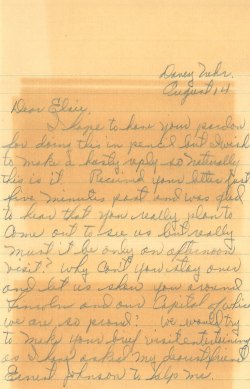 Davey Nebr.
August 14
Dear Elsie,
I hope to have your pardon
for doing this in pencil but I wish
to make a hasty reply so naturally
this is it. Received your letter just
five minutes past and was glad
to hear that you really plan to
come out to see us but really
must it be only an afternoon
visit? Why Can't you stay over
and let us show you around
Lincoln and our Capitol of which
we are so proud? We would try
to make your brief visit entertaining
as I have asked my
Johnson to help me.